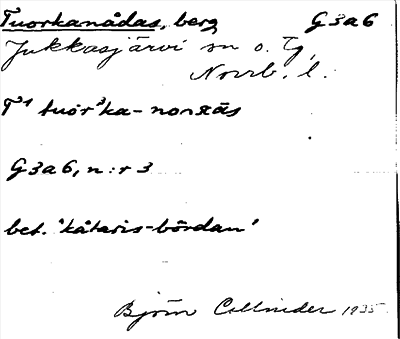 Tuorkanådas, berg G3a6
Jukkasjärvi sn o. Tg,
Norrb. l.
T¹ tuor'ka-non
G3a6, n:r 3
bet. 'kåtaris-bördan'
Björn Collinder 1935